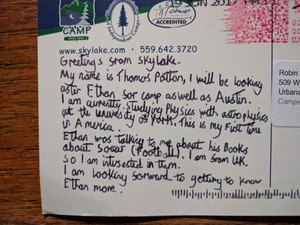 CAMP
ACCREDITED
19 JUN 2017 PM
www.skylake.com • 559.642.3720
Greetings from Skylake.
My name is Thomas Patton, I will be looking
after Ethan for camp as well as Austin.
I am currently studying Physics with astrophysics
at the University of York. This is my first time
in America.
Ethan was talking to me about his Books
about Soccer (Football). I am from UK.
so I am interested in them.
I am looking forward to getting to know
Ethan more.
Robin
509 W
Urbana
Campe